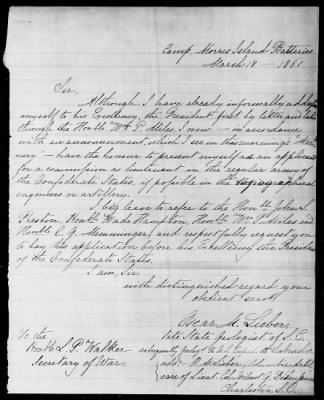 Camp, Morris Island Batteries
March 18 - 1861
Sir,
Although I have already informally
myself to his Excellency, the President, first by letter and
through the Honble Wm P. Miles, I now - in accordance
with an announcement, which I see in this morning's
- have the honour to present myself as an applicant
for a commission as lieutenant in the regular army of
the Confederate States, if possible in the topographical
engineers or artillery.
I beg leave to refer to the Honble John S.
Preston, Honble Wade Hampton, Honble Wm P. Miles and
Honble C. G. Memminger, and respectfully request you
to lay this application before his Excellency the President
of the Confederate States.
I am, Sir,
with distinguished regard your
obedient servt
Oscar M. Lieber,
late State Geologist of S.C.
subsequently geologist to U.S. to Labrador
To the
Honble L. P. Walker
Secretary of War.
care of Lieut.
Charleston S.C.